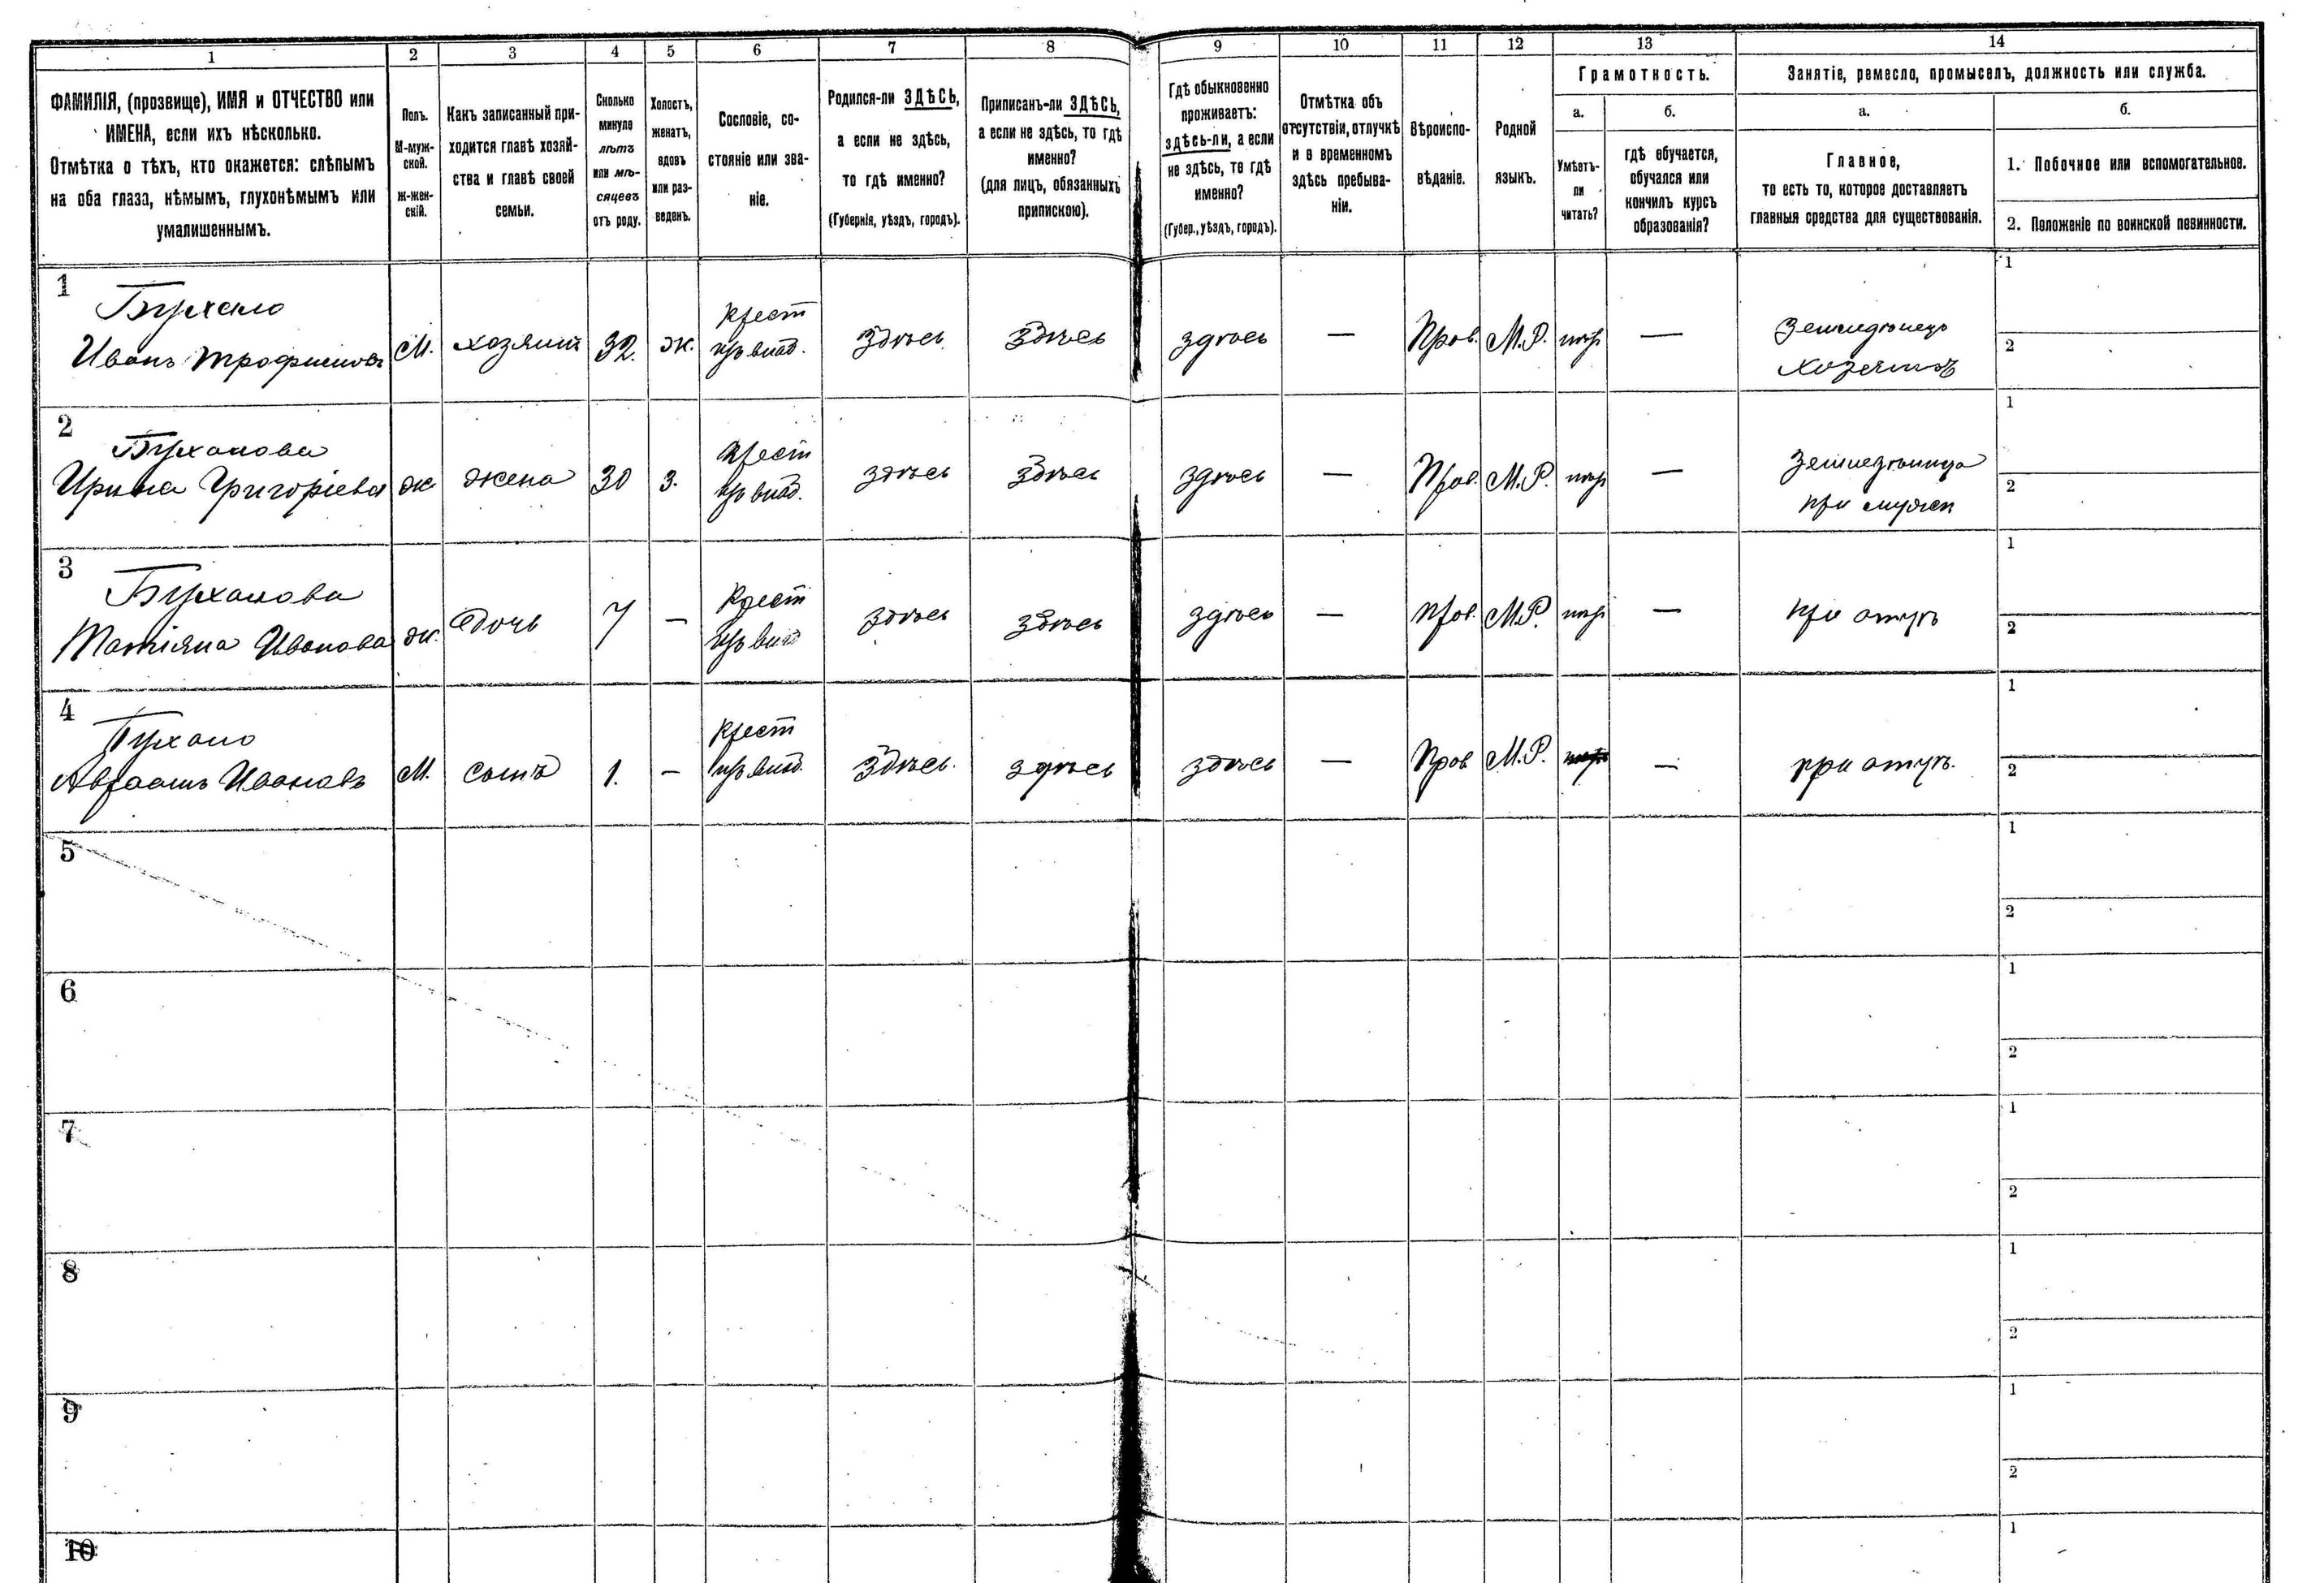 1 2 3 4 5 6 7 8 9 10 11 12 13 14
ФАМИЛІЯ, (прозвище), ИМЯ и ОТЧЕСТВО или
ИМЕНА, если ихъ нѣсколько.
Отмѣтка о тѣхъ, кто окажется: слѣпымъ
на оба глаза, нѣмымъ, глухонѣмымъ или
умалишеннымъ.
Полъ.
М-муж-
ской.
Ж-жен-
скій.
Какъ записанный при-
ходится главѣ хозяй-
ства и главѣ своей
семьи.
Сколько
минуло
лѣтъ
или мѣ-
сяцевъ
отъ роду.
Холостъ,
женатъ,
вдовъ
или раз-
веденъ.
Сословіе, со-
стояніе или зва-
ніе.
Родился-ли ЗДѢСЬ,
а если не здѣсь,
то гдѣ именно?
(Губернія, уѣздъ, городъ).
Приписанъ-ли ЗДѢСЬ,
а если не здѣсь, то гдѣ
именно?
(для лицъ, обязанныхъ
припискою).
Гдѣ обыкновенно
проживаетъ:
здѣсь-ли, а если
не здѣсь, то гдѣ
именно?
(Губер., уѣздъ, городъ).
Отмѣтка объ
отсутствіи, отлучкѣ
и о временномъ
здѣсь пребыва-
ніи.
Вѣроиспо-
вѣданіе.
Родной
языкъ.
Грамотность.
а.
Умѣетъ-
ли
читать?
б.
гдѣ обучается,
обучался или
кончилъ курсъ
образованія?
Занятіе, ремесло, промыселъ, должность или служба.
а.
Главное,
то есть то, которое доставляетъ
главныя средства для существованія.
б.
1. Побочное или вспомогательное.
2. Положеніе по воинской повинности.
1
Бухало
Иванъ Трофимовъ
М.
хозяинъ
32.
ж.
Крест
изъ влад.
здѣсь
здѣсь
здѣсь
—
Прав.
М.Р.
нѣтъ
—
Земледѣлецъ
хозяинъ
1
2
2
Бухалова
Ирина Григоріева
ж
жена
30
з.
Крест
изъ влад.
здѣсь
здѣсь
здѣсь
—
Прав.
М.Р.
нѣтъ
—
Земледѣлица
при мужѣ
1
2
3
Бухалова
Татіяна Иванова
ж.
дочь
7
—
Крест
изъ влад
здѣсь
здѣсь
здѣсь
—
Прав.
М.Р.
нѣтъ
—
при отцѣ
1
2
4
Бухало
Авраамъ Ивановъ
М.
сынъ
1.
—
Крест
изъ влад.
здѣсь.
здѣсь
здѣсь
—
Прав
М.Р.
—
при отцѣ.
1
2
5
1
2
6
1
2
7
1
2
8
1
2
9
1
2
10
1